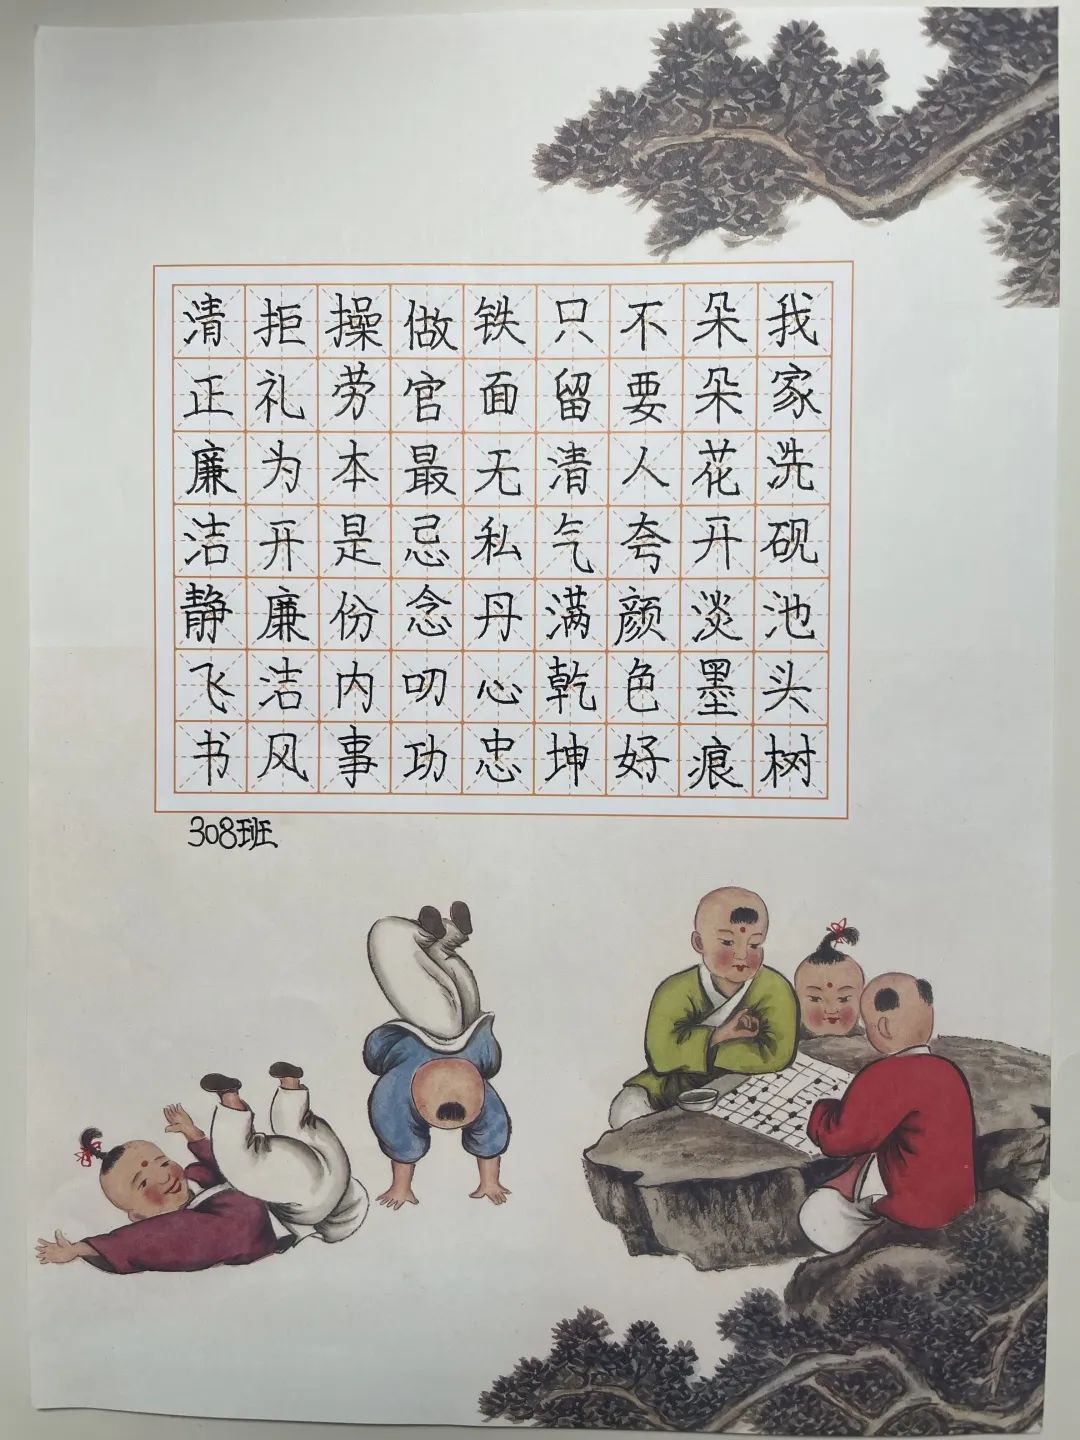 我家洗砚池头树
朵朵花开淡墨痕
不要人夸颜色好
只留清气满乾坤
铁面无私丹心忠
做官最忌念叨功
操劳本是份内事
拒礼为开廉洁风
清正廉洁静飞书
308班